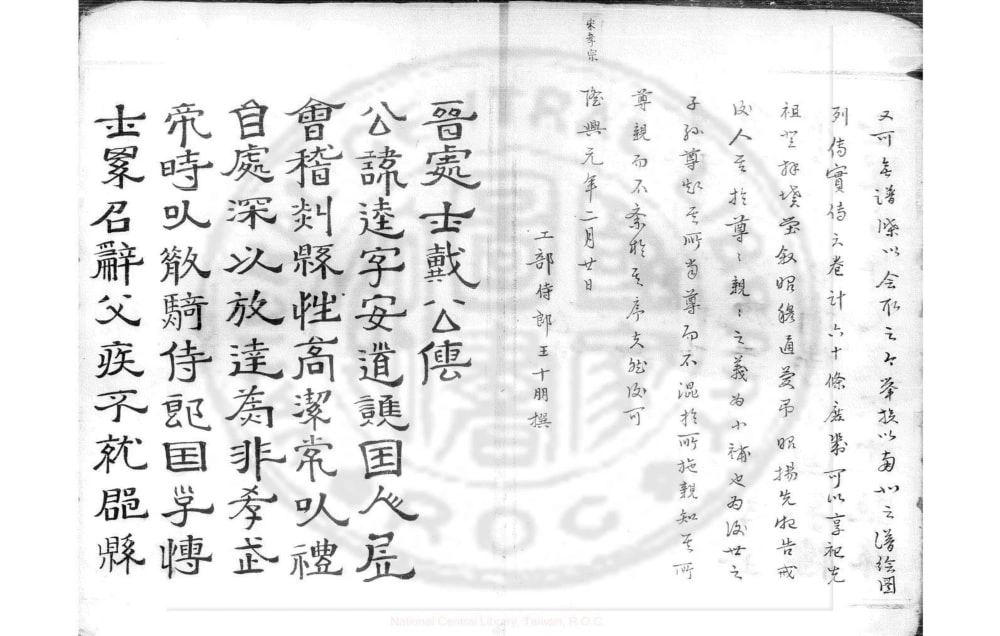 又可無譜牒以會所之今舉族以南北之譜繪圖
列傳實傳之卷計六十條庶幾可以享祀先
祖登拜墳塋叙昭穆通慶吊昭揚先烈告戒
後人至於尊尊親親之義為小補也為後世之
子孫尊知其所當尊而不混於所施親知其所
尊親而不紊於其序夫然後可
宋孝宗
隆興元年二月廿日
工部侍郎王十朋撰
晉處士戴公傳
公諱逵字安道譙国人居
會稽剡縣性高潔常以禮
自處深以放達為非孝武
帝時以散騎侍郎国子博
士累召辭父疾不就郡縣
National Central Library, Taiwan, R.O.C.